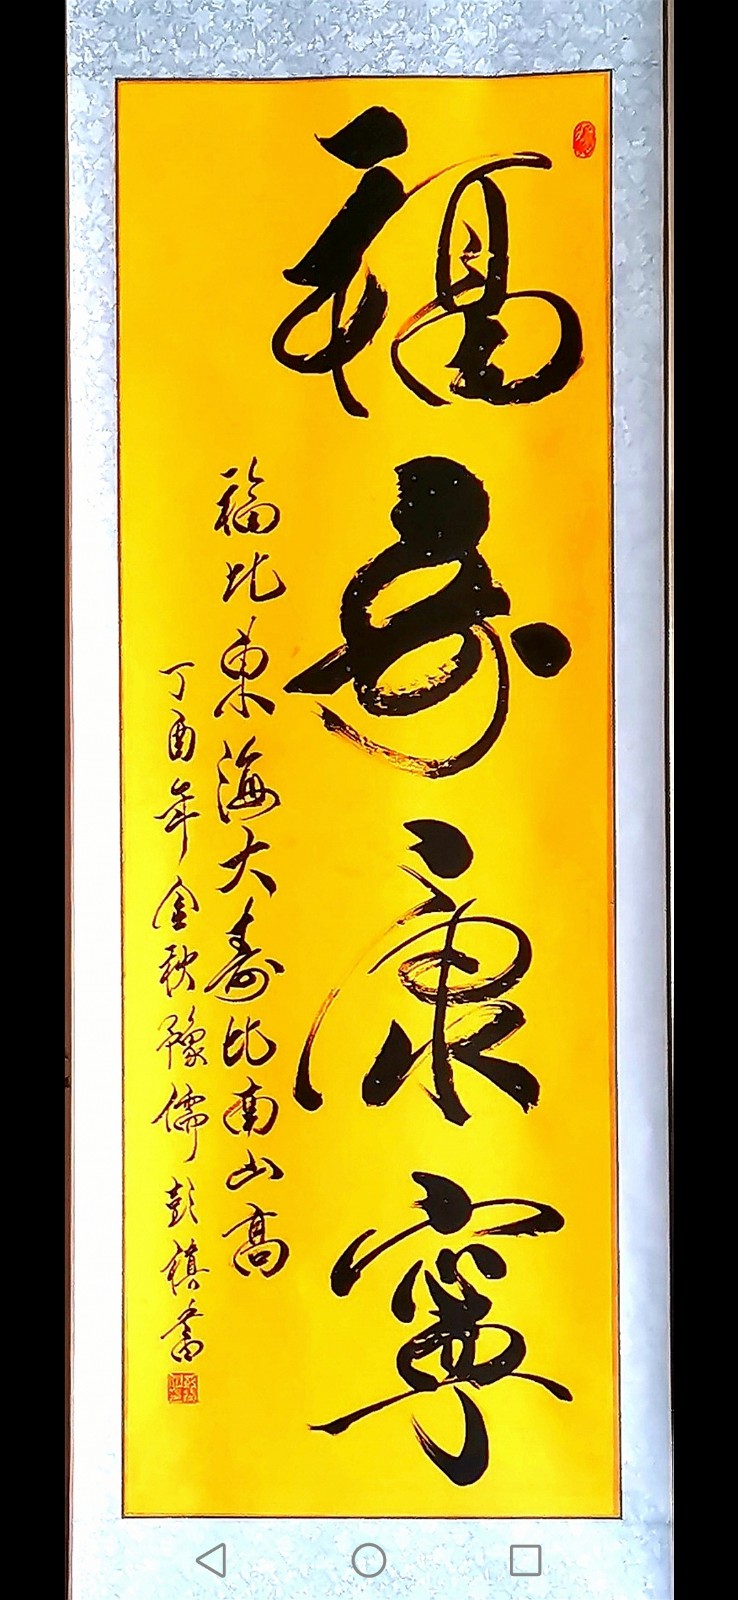 福寿康寧
福比東海大寿比南山高
丁酉年金秋豫儒彭禛書